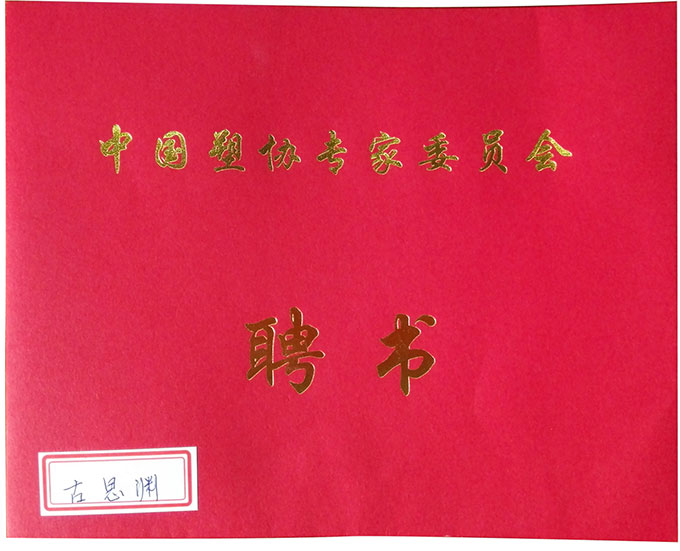 中国塑协专家委员会
聘书
古思渊